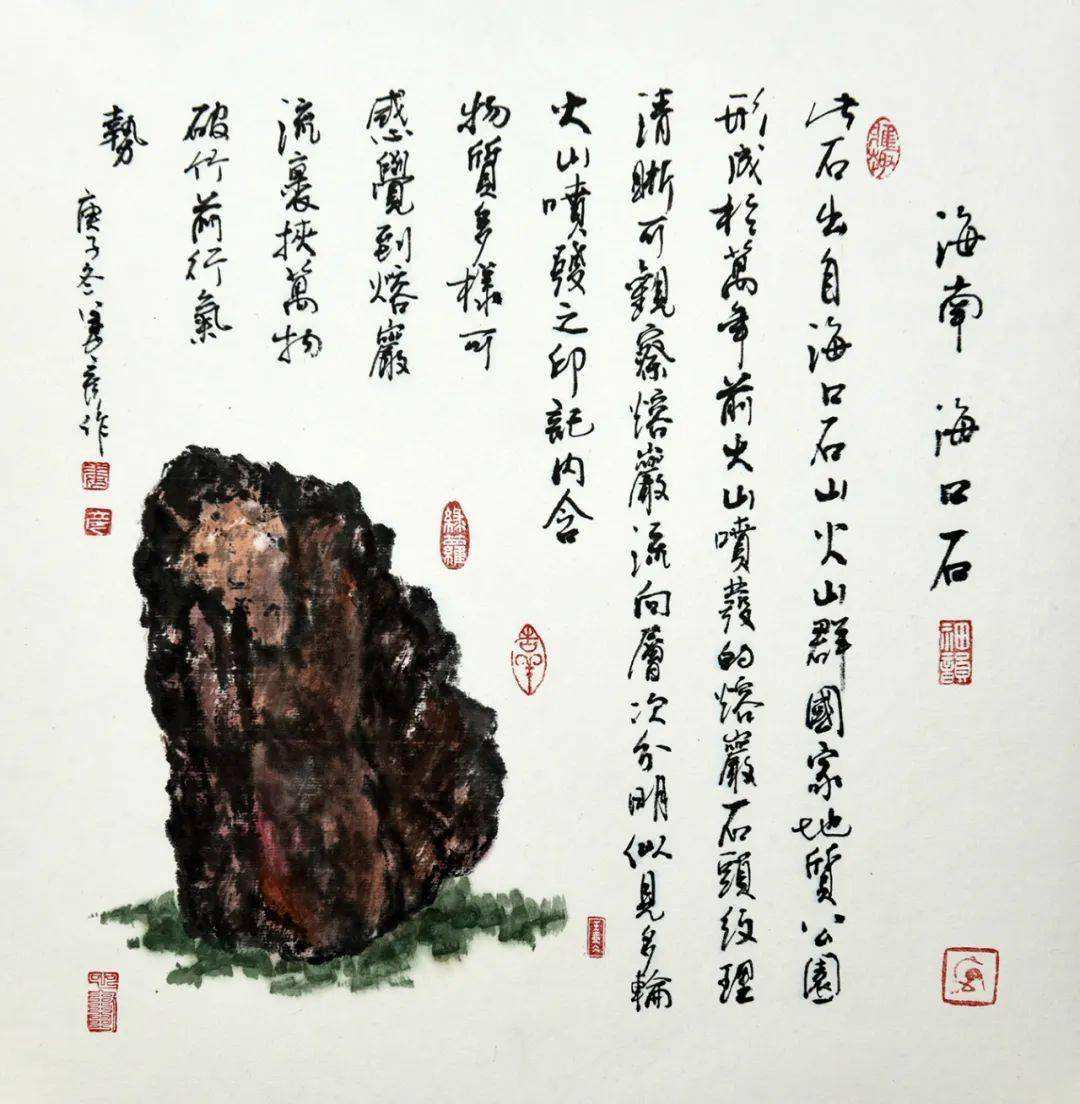 海南 海口石
此石出自海口石山火山群國家地質公園
形成於萬年前火山噴發的熔巖石頭紋理
清晰可觀察熔巖流向層次分明似見多輪
火山噴發之印記内含
物質多樣可
感覺到熔巖
流裹挾萬物
破竹前行氣
勢
庚子冬彦作
綠蘿